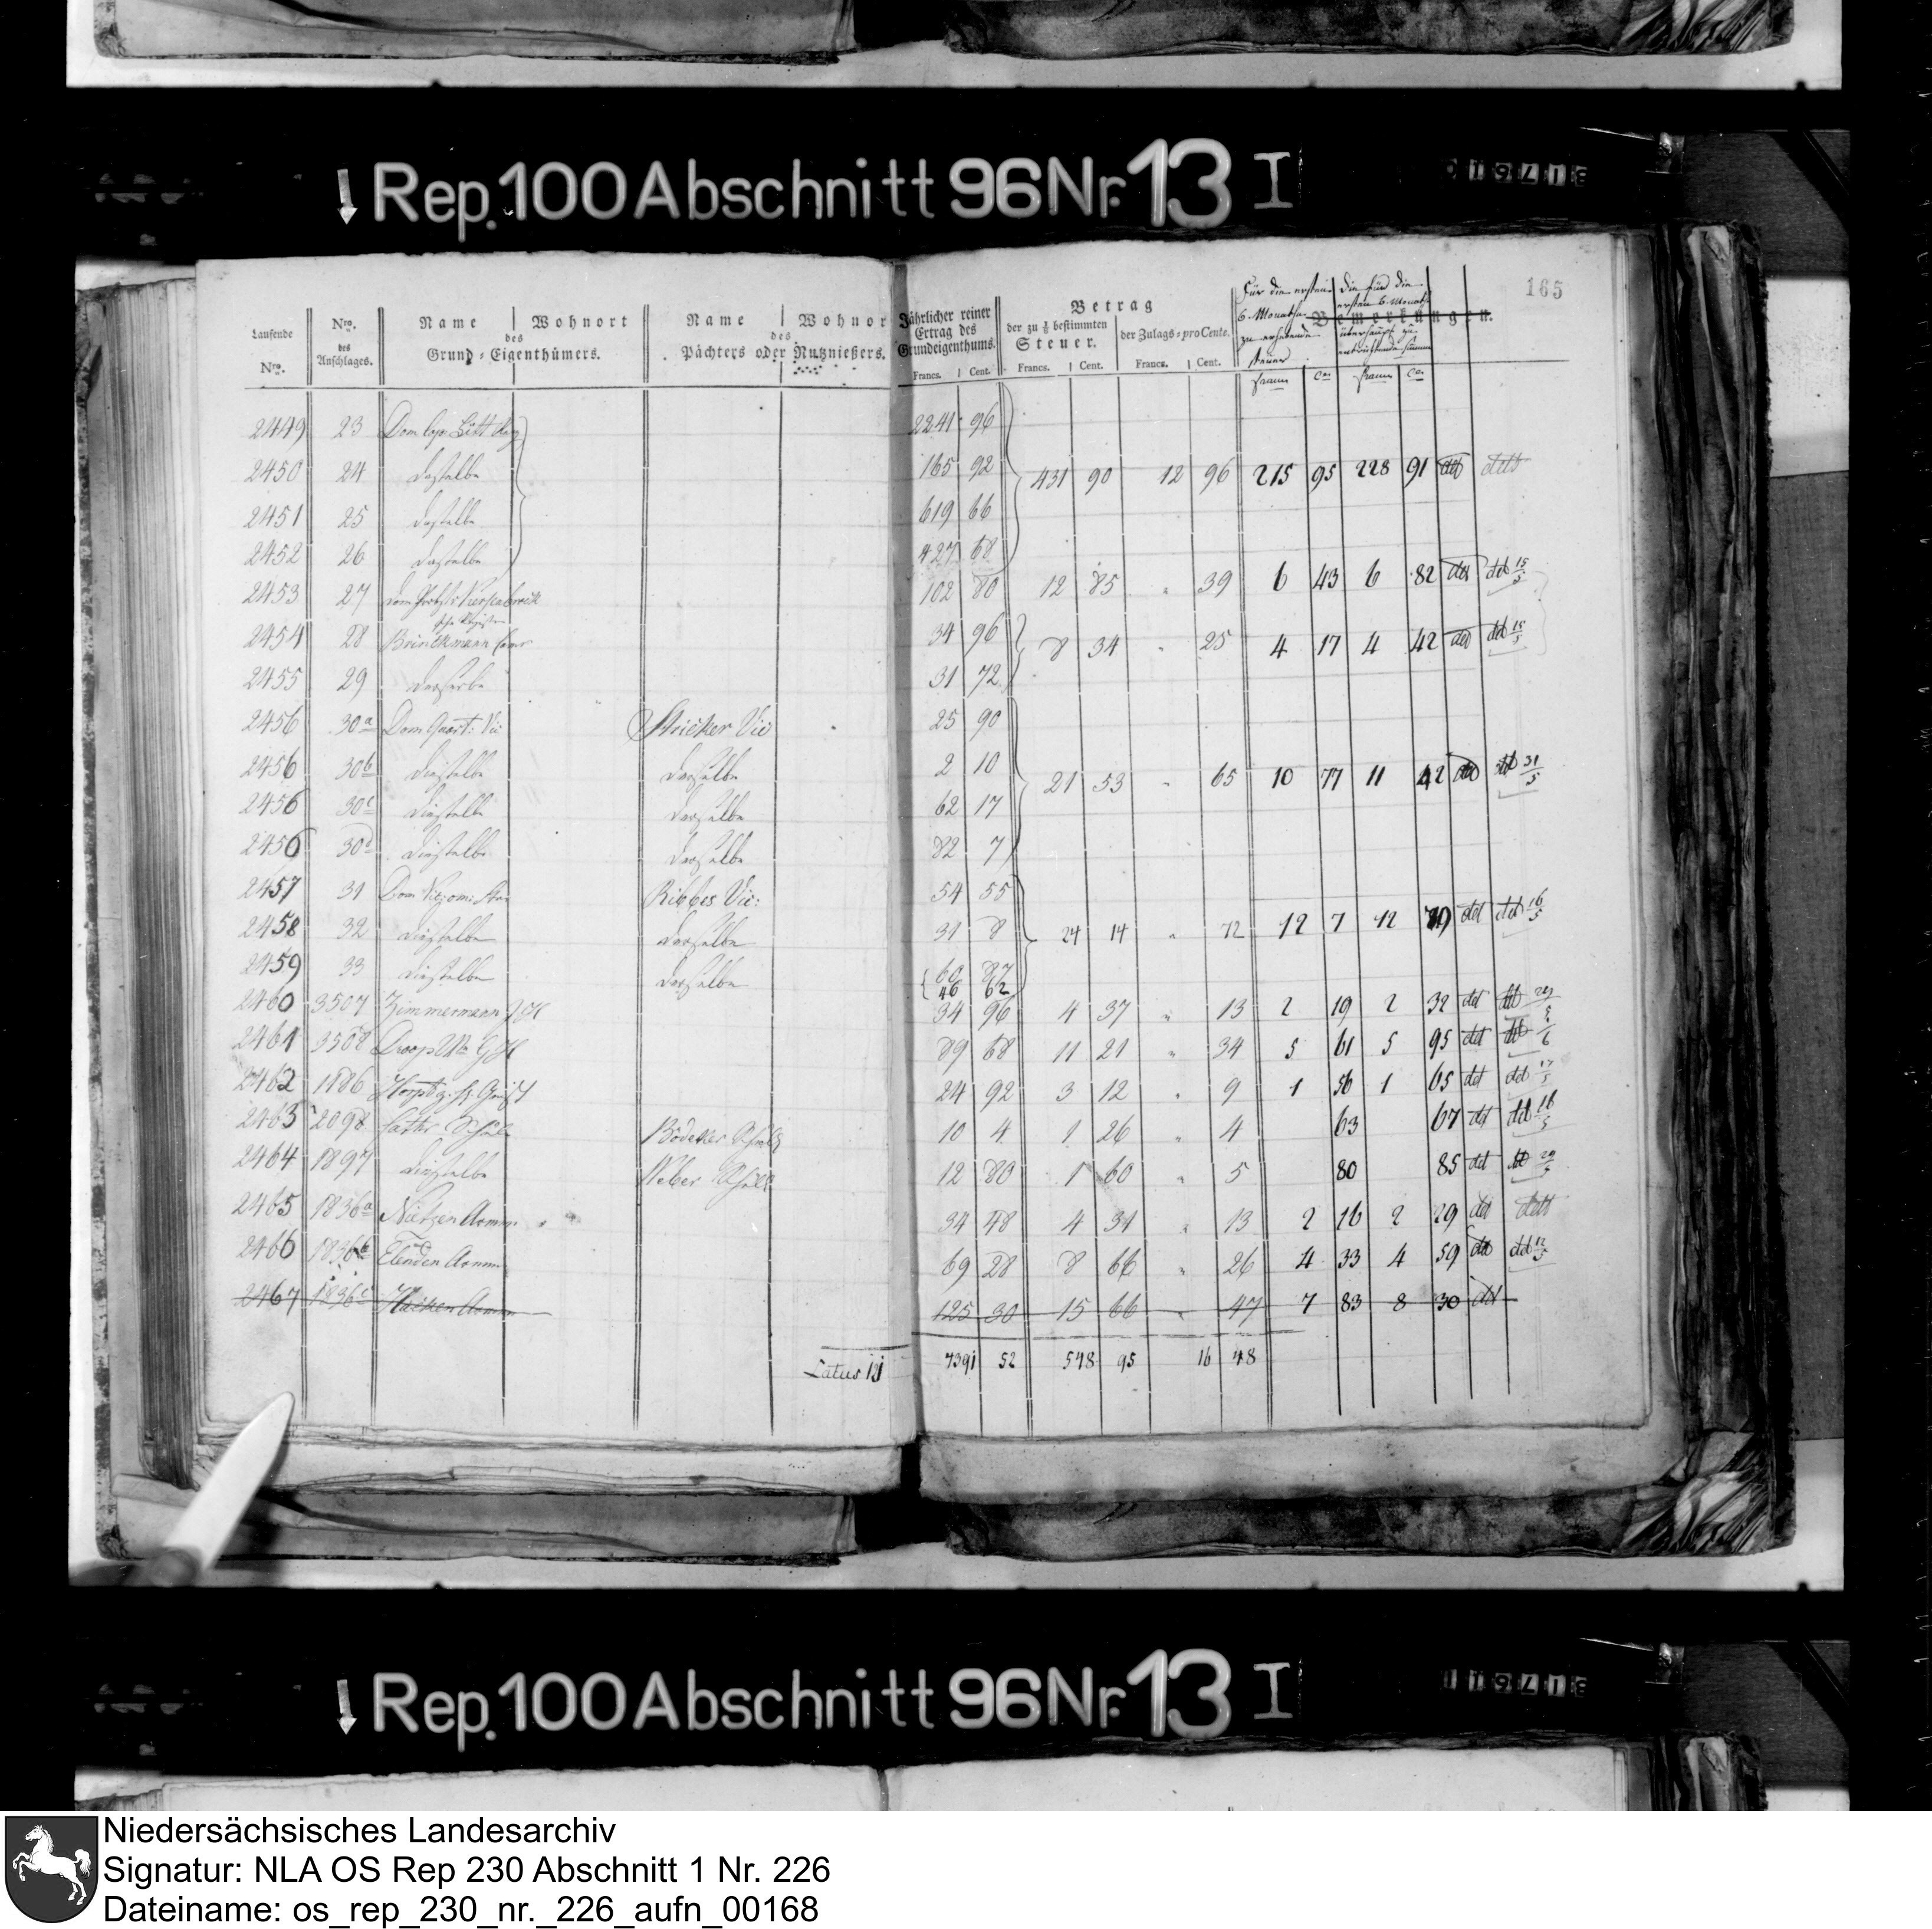 Rep. 100 Abschnitt 96 Nr. 13 I
165
Laufende Nro.
Nro. des Anschlages.
Name | Wohnort
des
Grund-Eigenthümers.
Name | Wohnor
des
Pächters oder Nutznießers.
Jährlicher reiner Ertrag des Grundeigenthums.
Francs. Cent.
Betrag
der zu bestimmten Steuer.
Francs. Cent.
der Zulags-pro Cente.
Francs. Cent.
Für die ersten 6. Monathe zu erhebende Steuer
Die für die ersten 6. Monath überhaupt zu entrichtende Summe
Bemerkungen.
Francs Cs. Francs Cs.
2449 23 Dom 2241 96
2450 24 dasselbe 165 92 431 90 12 96 215 95 228 91 ddt
2451 25 dasselbe 619 66
2452 26 dasselbe 427 68
2453 27 Dom Probst 102 80 12 85 " 39 6 43 6 82 ddt ddt 15/5
2454 28 Brinckmann 34 96 8 34 " 25 4 17 4 42 ddt ddt 15/5
2455 29 derselbe 31 72
2456 30a Dom Quart: Vic Stricker Vic 25 90
2456 30b dieselbe derselbe 2 10 21 53 " 65 10 77 11 42 ddt ddt 31/5
2456 30c dieselbe derselbe 62 17
2456 30d dieselbe derselbe 82 7
2457 31 Dom Ribbes Vic: 54 55
2458 32 dieselbe derselbe 31 8 24 14 " 72 12 7 12 79 ddt ddt 16/5
2459 33 dieselbe derselbe 60 87
46 62
2460 3507 Zimmermann 34 96 4 37 " 13 2 19 2 32 ddt ddt
2461 3508 Droop 89 68 11 21 " 34 5 61 5 95 ddt ddt
2462 1886 24 92 3 12 " 9 1 56 1 65 ddt ddt
2463 2098 Bödeker 10 4 1 26 " 4 63 67 ddt ddt 16/5
2464 1897 dieselbe Weber 12 80 1 60 " 5 80 85 ddt ddt
2465 1836a Armen 34 48 4 31 " 13 2 16 2 29 ddt
2466 1836b Elenden Armen 69 28 8 66 " 26 4 33 4 59 ddt ddt 12/5
2467 1836c Armen 125 30 15 66 " 47 7 83 8 30 ddt
Latus 7391 52 548 95 16 48
Rep. 100 Abschnitt 96 Nr. 13 I
Niedersächsisches Landesarchiv
Signatur: NLA OS Rep 230 Abschnitt 1 Nr. 226
Dateiname: os_rep_230_nr._226_aufn_00168